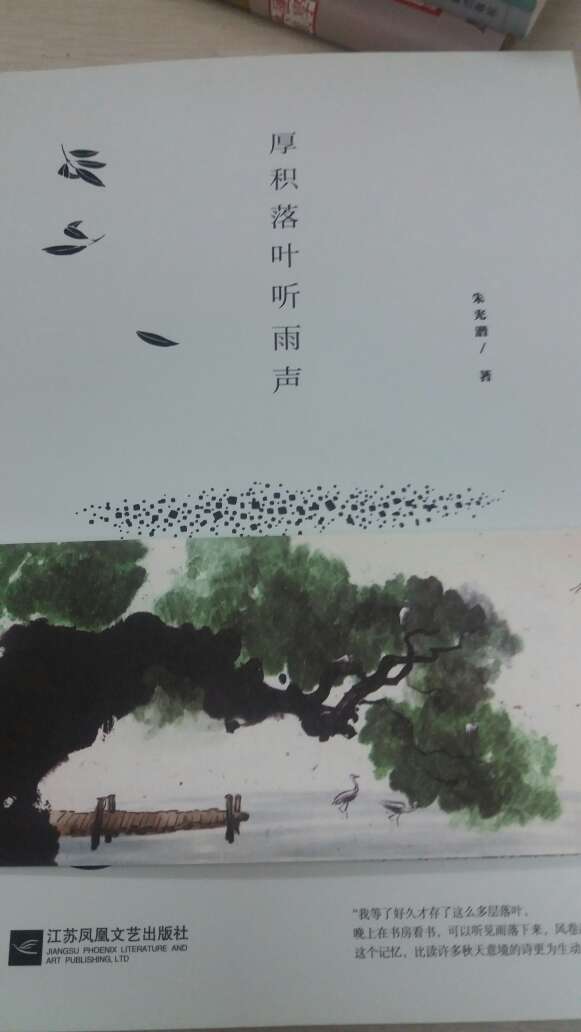 厚积落叶听雨声
朱光潜/著
江苏凤凰文艺出版社
JIANGSU PHOENIX LITERATURE AND
ART PUBLISHING, LTD
“我等了好久才存了这么多层落叶，
晚上在书房看书，可以听见雨落下来，风卷
这个记忆，比读许多秋天意境的诗更为生动